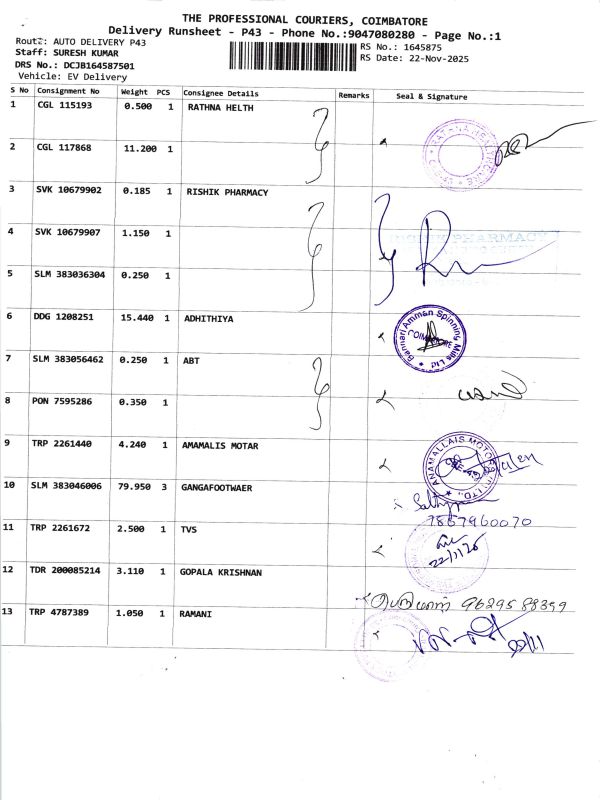 THE PROFESSIONAL COURIERS, COIMBATORE
Delivery Runsheet - P43 - Phone No.:9047080280 - Page No.:1
Route: AUTO DELIVERY P43
Staff: SURESH KUMAR
DRS No.: DCJB164587501
Vehicle: EV Delivery
RS No.: 1645875
RS Date: 22-Nov-2025
S No Consignment No Weight PCS Consignee Details Remarks Seal & Signature
1 CGL 115193 0.500 1 RATHNA HELTH
2 CGL 117868 11.200 1
3 SVK 10679902 0.185 1 RISHIK PHARMACY
4 SVK 10679907 1.150 1
PHARMACY
5 SLM 383036304 0.250 1
6 DDG 1208251 15.440 1 ADHITHIYA
Bannari Amman Spinning Mills Ltd
7 SLM 383056462 0.250 1 ABT
8 PON 7595286 0.350 1
9 TRP 2261440 4.240 1 AMAMALIS MOTAR
ANAMALLAIS MOTORS
10 SLM 383046006 79.950 3 GANGAFOOTWAER
7867960070
11 TRP 2261672 2.500 1 TVS
22/11/25
12 TDR 200085214 3.110 1 GOPALA KRISHNAN
9629588399
13 TRP 4787389 1.050 1 RAMANI
22/11